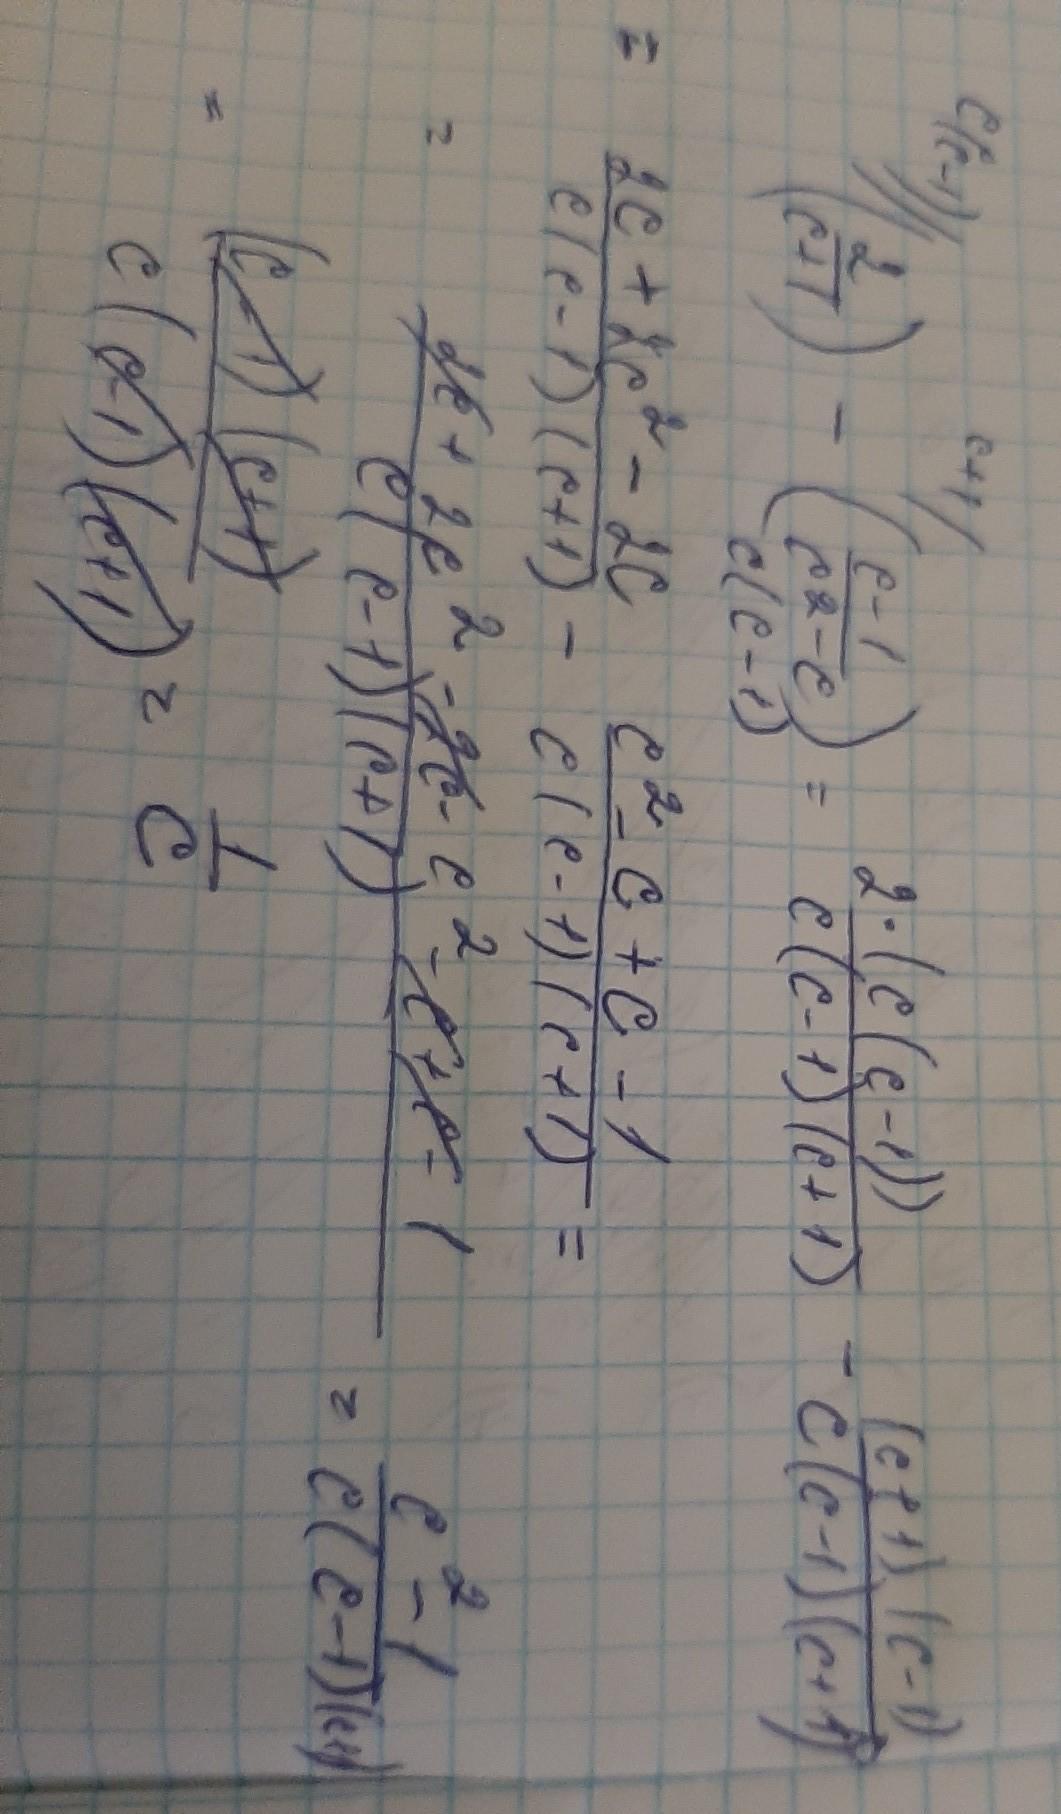 c(c-1)// c+1/
(2/(c+1)) - ((c-1)/(c²-c)) = 2·(c(c-1))/(c(c-1)(c+1)) - (c+1)(c-1)/(c(c-1)(c+1))
c(c-1)
= (2c+2c²-2c)/(c(c-1)(c+1)) - (c²-c+c-1)/(c(c-1)(c+1)) =
= (2c+2c²-2c-c²-c+c-1)/(c(c-1)(c+1)) = (c²-1)/(c(c-1)(c+1))
= (c-1)(c+1)/(c(c-1)(c+1)) = 1/c